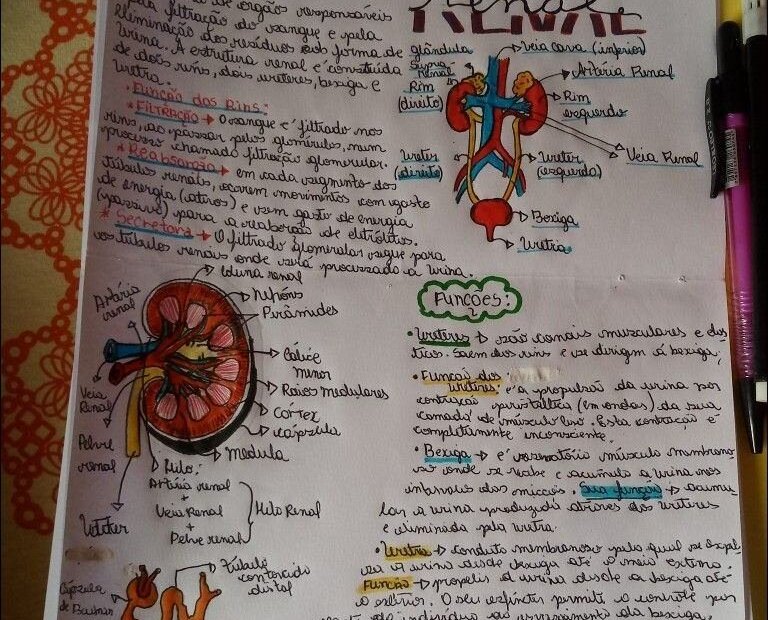 Renal
RENAL
de orgãos responsáveis
filtração do sangue e pela
eliminação dos resíduos sob forma de
Urina. A estrutura renal é constituída
de dois rins, dois ureteres, bexiga e
Uretra.
• Função dos Rins:
* Filtração → O sangue é filtrado nos
rins, ao passar pelos glomérulos, num
processo chamado filtração glomerular.
* Reabsorção → em cada segmento dos
túbulos renais, ocorem movimentos com gasto
de energia (ativos) e sem gasto de energia
(passivo) para a reabsorção de eletrólitos.
* Secretora → O filtrado glomerular segue para
os túbulos renais onde será processado a urina.
glândula
Supra
Renal
Rim
(direito)
Ureter
(direito)
Veia cava (inferior)
Artéria Renal
Rim
esquerdo
Veia Renal
Ureter
(esquerdo)
Bexiga
Uretra
Coluna renal
Néfrons
Pirâmides
Cálice
menor
Raios Medulares
Córtex
Cápsula
Medula
Artéria
renal
Veia
Renal
Pelve
renal
Ureter
Hilo:
Artéria renal
+
Veia Renal
+
Pelve renal
Hilo Renal
Túbulo
contorcido
distal
Cápsula
de Bowman
Funções:
• Ureteres → são canais musculares e elás-
ticos. Saem dos rins e se dirigem á bexiga;
• Função dos
Ureteres: é a propulsão da urina por
contração peristáltica (em ondas) da sua
camada de músculo liso. Esta contração é
completamente inconsciente.
• Bexiga → é reservatório músculo membrano-
so onde se recebe e acumula a urina nos
intervalos das micções. Sua função → acumu-
lar a urina produzida através dos ureteres
e eliminada pela uretra.
• Uretra → conduto membranoso pelo qual se expul-
sa a urina desde bexiga até o meio externo.
Função → propelir a urina desde a bexiga até
o exterior. O seu esfíncter permite o controle por
do indivíduo ao esvaziamento da bexiga.